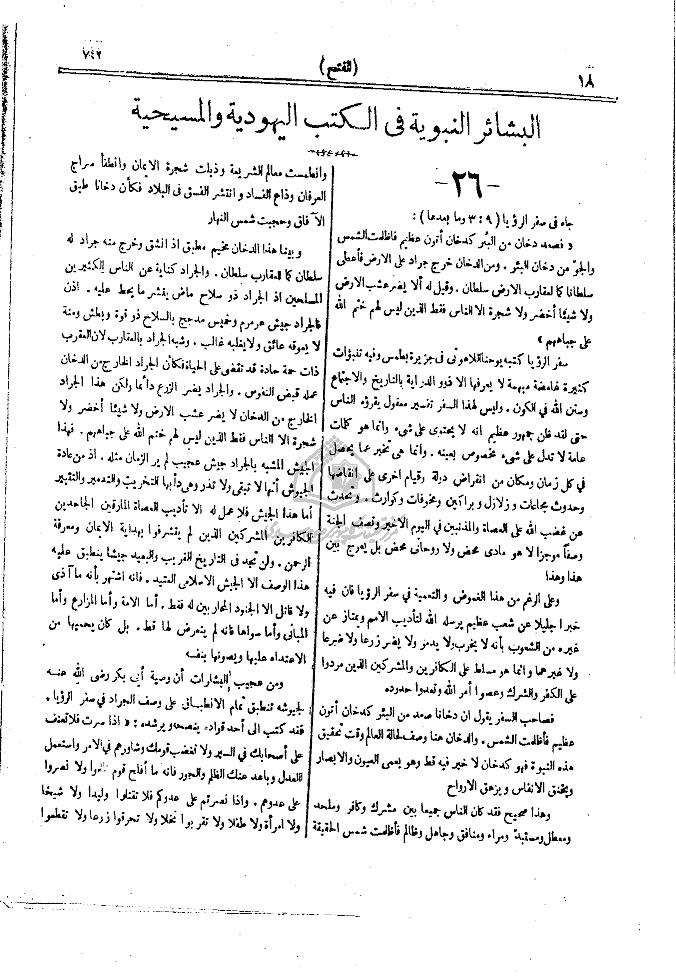 ١٨
(الفتح)
٧٤٢
البشائر النبوية فى الكتب اليهودية والمسيحية
- ٢٦ -
جاء فى سفر الرؤيا (٩ : ٣ وما بعدها) :
« فصعد دخان من البئر كدخان أتون عظيم فاظلمت الشمس
والجو من دخان البئر . ومن الدخان خرج جراد على الارض فأعطى
سلطانا كما لعقارب الارض سلطان . وقيل له ألا يضر عشب الارض
ولا شيئا أخضر ولا شجرة الا الناس فقط الذين ليس لهم ختم الله
على جباههم »
سفر الرؤيا كتبه يوحنا اللاهوتى فى جزيرة بطمس وفيه تنبؤات
كثيرة غامضة مبهمة لا يعرفها الا ذوو الدراية بالتاريخ والاجتماع
وسنن الله فى الكون . وليس لهذا السفر تفسير معقول يقرؤه الناس
حتى لقد ظن جمهور عظيم انه لا يحتوى على شىء وانما هو كلمات
عامة لا تدل على شىء مخصوص بعينه . وانما هى تخبر عما يحصل
فى كل زمان ومكان من انقراض دولة وقيام اخرى على انقاضها
وحدوث مجاعات و زلازل و براكين ومخرفات وكوارث . وتحدث
عن غضب الله على العصاة والمذنبين فى اليوم الاخير وتصف الجنة
وصفا موجزا لا هو مادى محض ولا روحانى محض بل يمزج بين
هذا وهذا
وعلى الرغم من هذا الغموض والتعمية فى سفر الرؤيا فان فيه
خبرا جليلا عن شعب عظيم يرسله الله لتأديب الامم ويمتاز عن
غيره من الشعوب بأنه لا يخرب ولا يدمر ولا يضر زرعا ولا ضرعا
ولا غيرهما وانما هو مسلط على الكافرين والمشركين الذين مردوا
على الكفر والشرك وعصوا أمر الله وتعدوا حدوده
فصاحب السفر يقول ان دخانا صعد من البئر كدخان أتون
عظيم فأظلمت الشمس . والدخان هنا وصف لحالة العالم وقت تحقيق
هذه النبوة فهو كدخان لا خير فيه قط وهو يعمى العيون والابصار
ويخنق الانفاس ويزهق الارواح
وهذا صحيح فقد كان الناس جميعا بين مشرك وكافر وملحد
ومعطل ومستبد ومراء ومنافق وجاهل وظالم فأظلمت شمس الحقيقة
وانطمست معالم الشريعة وذبلت شجرة الايمان وانطفأ سراج
العرفان وذاع الفساد و انتشر الفسق فى البلاد فكأن دخانا طبق
الآفاق وحجبت شمس النهار
و بينا هذا الدخان مخيم مطبق اذ انشق وخرج منه جراد له
سلطان كما للعقارب سلطان . والجراد كناية عن الناس الكثيرين
المسلحين اذ الجراد ذو سلاح ماض يقشر ما يحط عليه . اذن
فالجراد جيش عرمرم وخميس مدجج بالسلاح ذو قوة وبطش ومنة
لا يعوقه عائق ولا يغلبه غالب . وشبه الجراد بالعقارب لان العقرب
ذات حمة حادة قد تقضى على الحياة فكأن الجراد الخارج من الدخان
عمله قبض النفوس . والجراد يضر الزرع دائما ولكن هذا الجراد
الخارج من الدخان لا يضر عشب الارض ولا شيئا أخضر ولا
شجرة الا الناس فقط الذين ليس لهم ختم الله على جباههم . فهذا
الجيش المشبه بالجراد جيش عجيب لم ير الزمان مثله . اذ من عادة
الجيوش أنها لا تبقى ولا تذر وهى دأبها التخريب والتدمير والتقتير
أما هذا الجيش فلا عمل له الا تأديب العصاة المارقين الجاحدين
الكافرين المشركين الذين لم يتشرفوا بهداية الايمان ومعرفة
الرحمن . ولن تجد فى التاريخ القريب والبعيد جيشا ينطبق عليه
هذا الوصف الا الجيش الاسلامى العتيد . فانه اشتهر بأنه ما آذى
ولا قاتل الا الجنود المحاربين له فقط . أما الامة وأما المزارع وأما
المبانى وأما سواها فانه لم يتعرض لها قط . بل كان يحميها من
الاعتداء عليها ويصونها بنفسه
ومن عجيب البشارات أن وصية أبى بكر رضى الله عنه
لجيوشه تنطبق تمام الانطباق على وصف الجراد فى سفر الرؤيا .
فقد كتب الى أحد قواده ينصحه ويرشده : « اذا سرت فلا تعنف
على أصحابك فى السير ولا تغضب قومك وشاورهم فى الامر واستعمل
العدل وباعد عنك الظلم والجور فانه ما أفلح قوم ظلموا ولا نصروا
على عدوهم . واذا نصرتم على عدوكم فلا تقتلوا وليدا ولا شيخا
ولا امرأة ولا طفلا ولا تقربوا نخلا ولا تحرقوا زرعا ولا تقطعوا